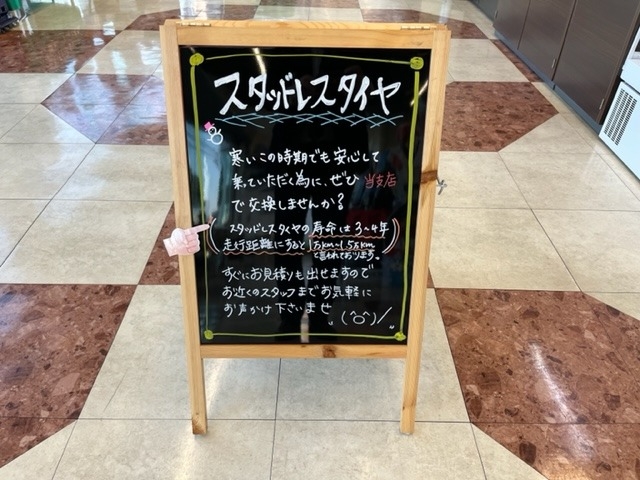 スタッドレスタイヤ
寒いこの時期でも安心して
乗っていただく為に、ぜひ当支店
で交換しませんか?
(スタッドレスタイヤの寿命は3~4年
走行距離にすると1万km~1.5万km
と言われております。)
すぐにお見積りも出せますので
お近くのスタッフまでお気軽に
お声かけ下さいませ